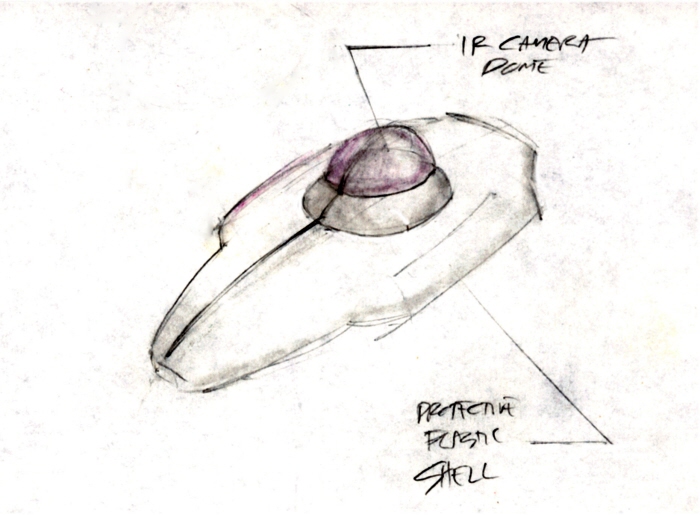 IR CAMERA
DOME
PROTECTIVE
PLASTIC
SHELL